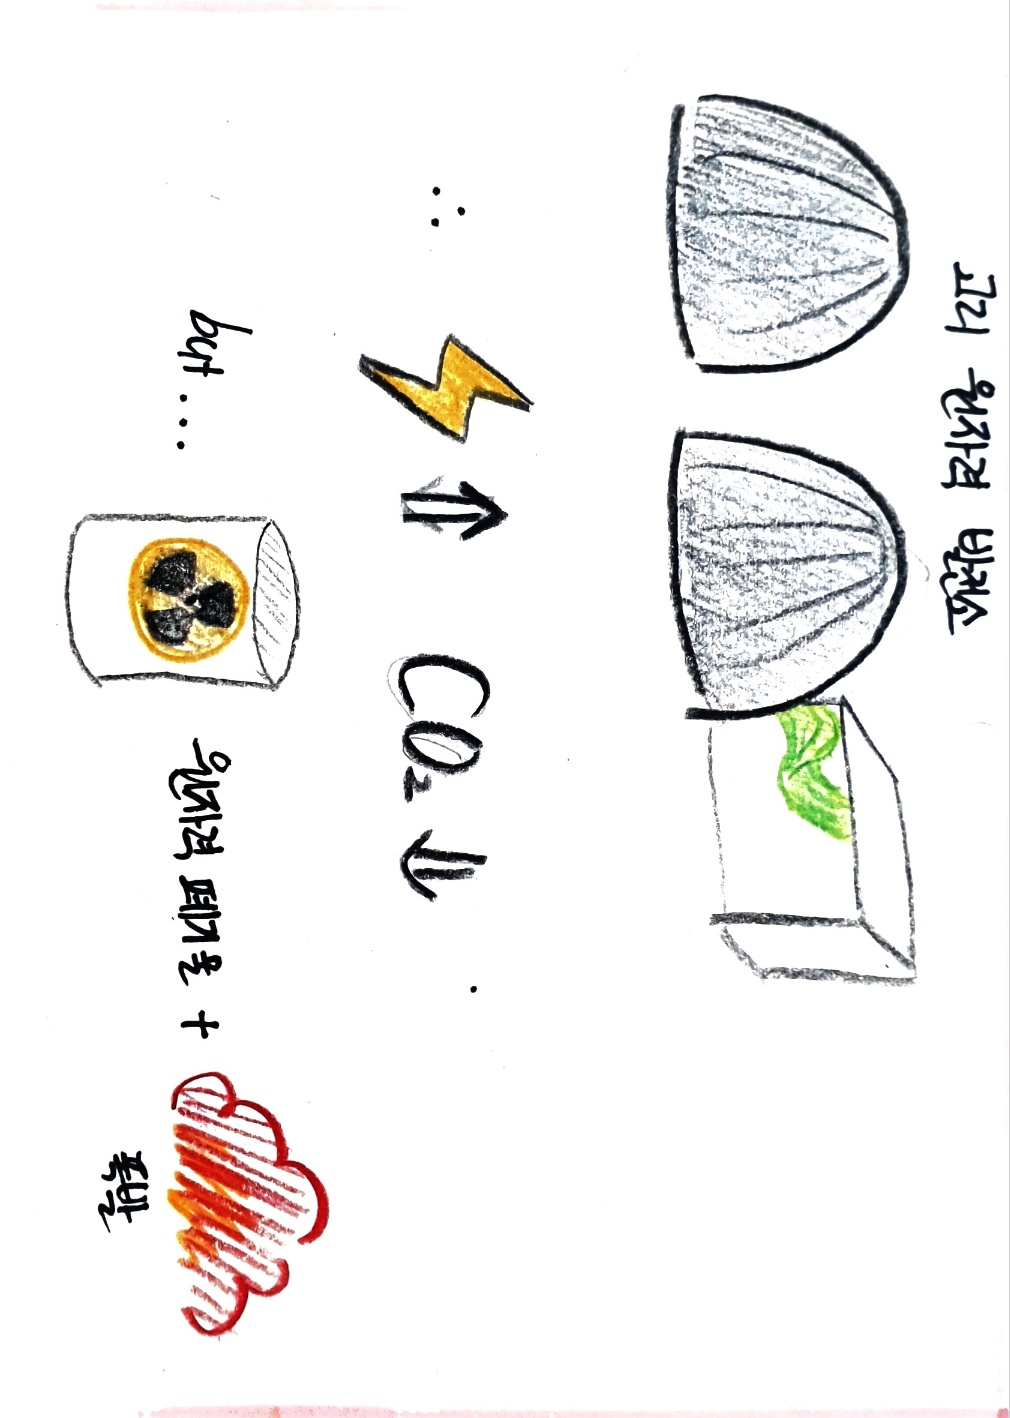 고리 원자력 발전소
∴ ⇑ CO₂ ⇓
but ...
원자력 폐기물 +
폭발